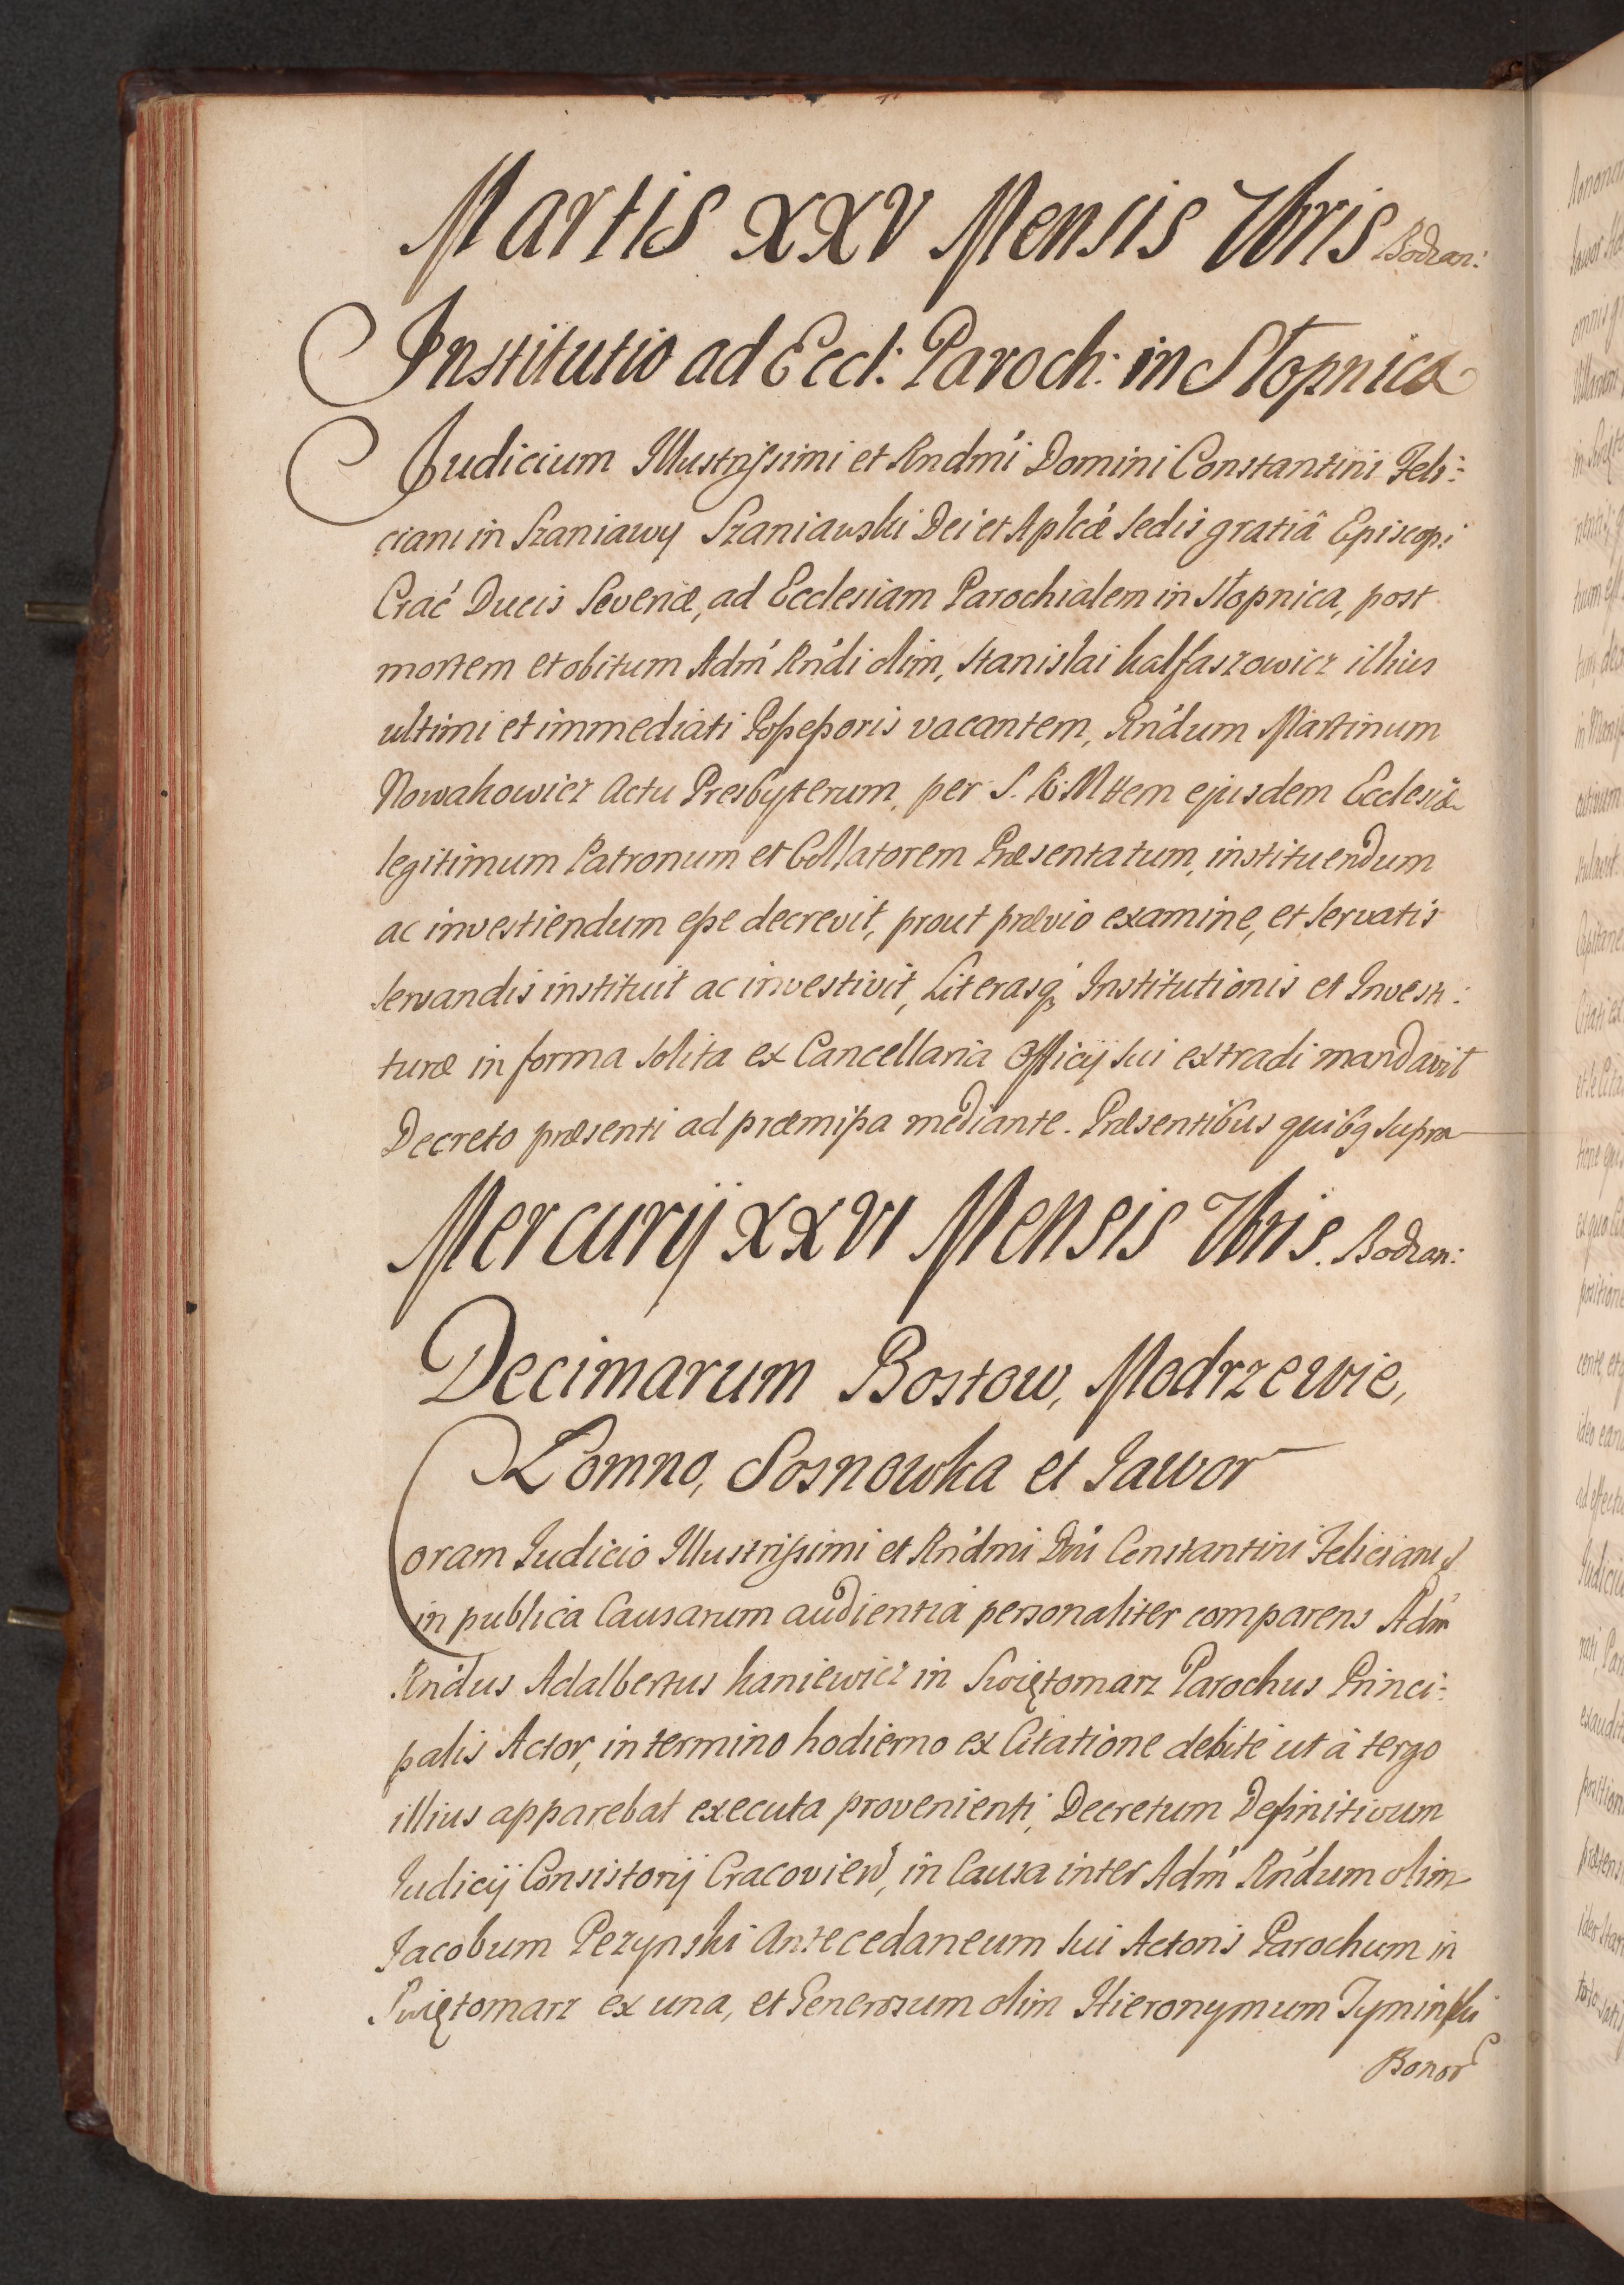 Martis XXV Mensis 7bris Bodzan:
Institutio ad Eccl: Paroch: in Stopnica
Judicium Illustrissimi et Rndmi Domini Constantini Feli:
ciani in Szaniawy Szaniawski Dei et Aplcæ Sedis gratiâ Episcopi
Crac Ducis Severiæ, ad Ecclesiam Parochialem in Stopnica, post
mortem et obitum Adm Rndi olim, Stanislai Kalfaszowicz illius
ultimi et immediati Possessoris vacantem, Rndum Martinum
Nowakowicz Actu Presbyterum, per S. R. Mttem ejusdem Ecclesiæ
legitimum Patronum et Collatorem Præsentatum, instituendum
ac investiendum esse decrevit, prout prævio examine, et servatis
servandis instituit ac investivit, Literasq Institutionis et Investi:
turæ in forma solita ex Cancellaria Officij sui extradi mandavit
Decreto præsenti ad præmissa mediante. Præsentibus quibq supra
Mercurij XXVI Mensis 7bris. Bodzan:
Decimarum Bostow, Modrzewie,
Łomno, Sosnowka et Jawor
Coram Judicio Illustrissimi et Rndmi Dni Constantini Feliciani S
in publica Causarum audientia personaliter comparens Adm
Rndus Adalbertus Kaniewicz in Swiętomarz Parochus Princi:
palis Actor, in termino hodierno ex Citatione debite ut à tergo
illius apparebat executa provenienti, Decretum Definitivum
Judicij Consistorij Cracovien, in Causa inter Adm Rndum olim
Jacobum Pezynski Antecedaneum sui Actoris Parochum in
Swiętomarz ex una, et Generosum olim Hieronymum Tyminski
Bonor